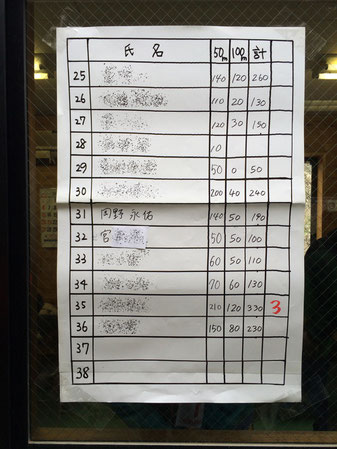 氏 名 50m 100m 計
25 140 120 260
26 110 20 130
27 120 30 150
28 10
29 50 0 50
30 200 40 240
31 岡野 永佑 140 50 190
32 宮 50 50 100
33 60 50 110
34 70 60 130
35 210 120 330 3
36 150 80 230
37
38